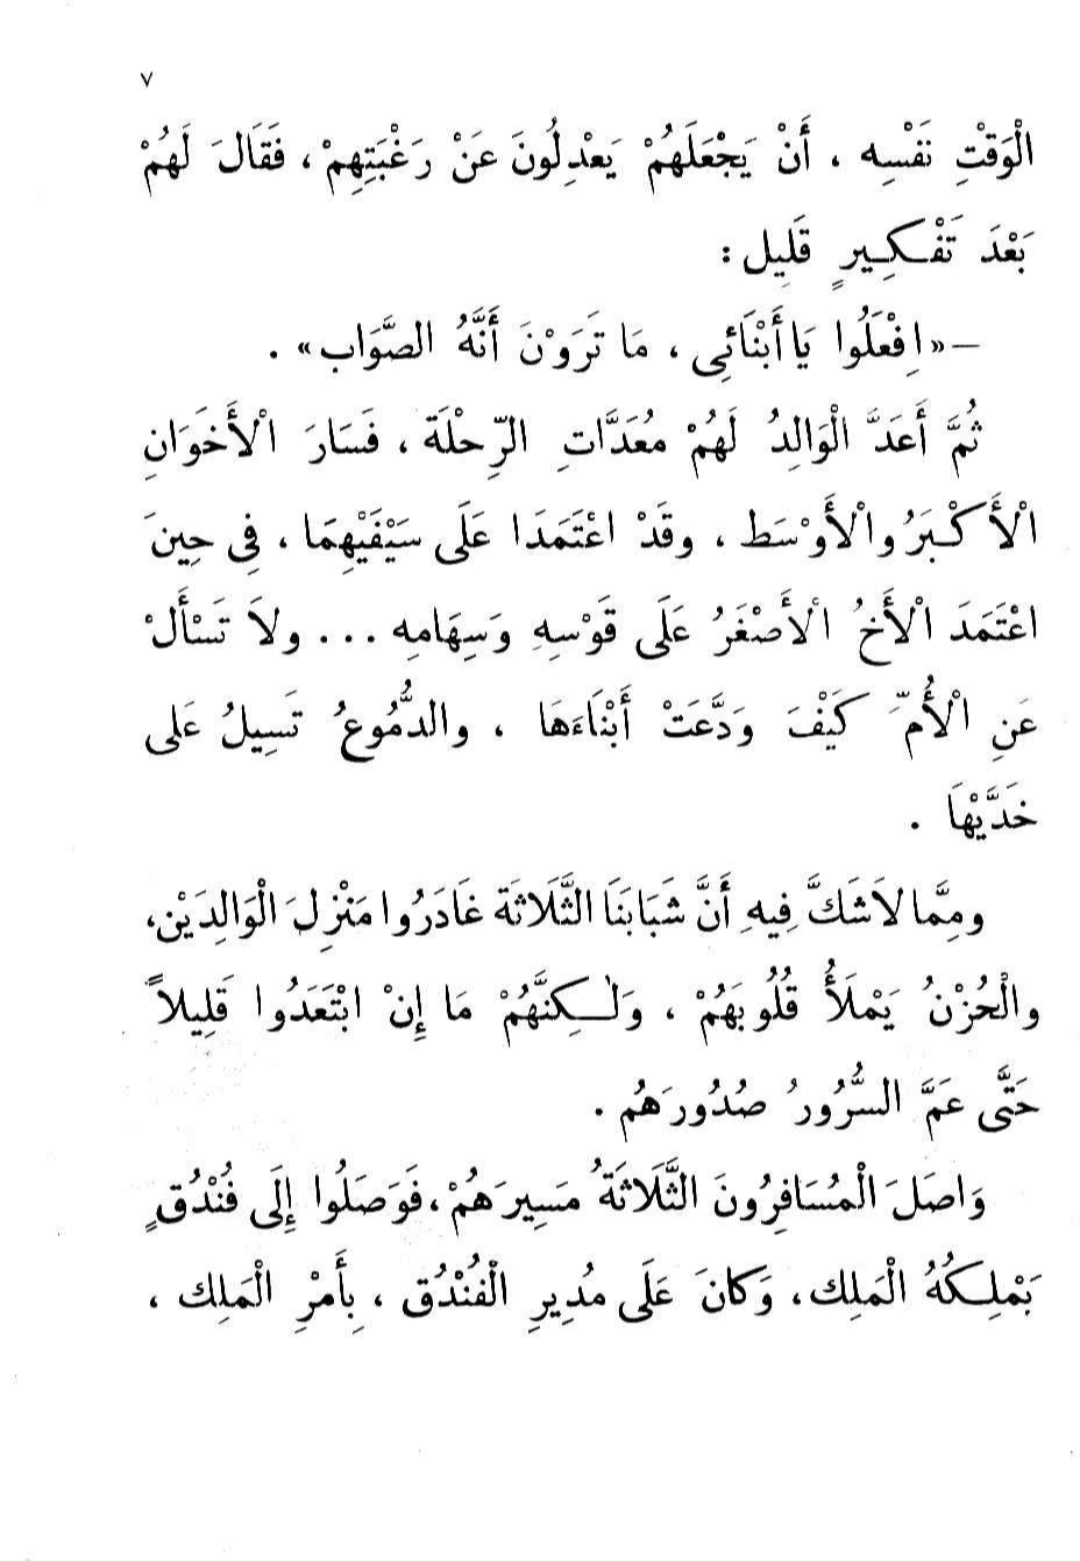 ٧
الْوَقْتِ نَفْسِه ، أَنْ يَجْعَلَهُمْ يَعْدِلُونَ عَنْ رَغْبَتِهِمْ ، فَقَالَ لَهُمْ
بَعْدَ تَفْكِيرٍ قَلِيل :
– «اِفْعَلُوا يَا أَبْنَائِى ، مَا تَرَوْنَ أَنَّهُ الصَّوَاب» .
ثُمَّ أَعَدَّ الْوَالِدُ لَهُمْ مُعَدَّاتِ الرِّحْلَة ، فَسَارَ الْأَخَوَانِ
الْأَكْبَرُ والْأَوْسَط ، وقَدْ اعْتَمَدَا عَلَى سَيْفَيْهِمَا ، فِى حِينَ
اعْتَمَدَ الْأَخُ الْأَصْغَرُ عَلَى قَوْسِهِ وَسِهَامِه ... ولاَ تَسْأَلْ
عَنِ الْأُمِّ كَيْفَ وَدَّعَتْ أَبْنَاءَهَا ، والدُّمُوعُ تَسِيلُ عَلى
خَدَّيْهَا .
ومِمَّا لاَشَكَّ فِيهِ أَنَّ شَبَابَنَا الثَّلَاثَة غَادَرُوا مَنْزِلَ الْوَالِدَيْن،
والْحُزْنُ يَمْلَأُ قُلُوبَهُمْ ، وَلَٰكِنَّهُمْ مَا إِنْ ابْتَعَدُوا قَلِيلاً
حَتَّى عَمَّ السُّرُورُ صُدُورَهُم .
وَاصَلَ الْمُسَافِرُونَ الثَّلَاثَةُ مَسِيرَهُمْ، فَوَصَلُوا إِلَى فُنْدُقٍ
يَمْلِكُهُ الْمَلِك، وَكانَ عَلَى مُدِيرِ الْفُنْدُق ، بِأَمْرِ الْمَلِك ،